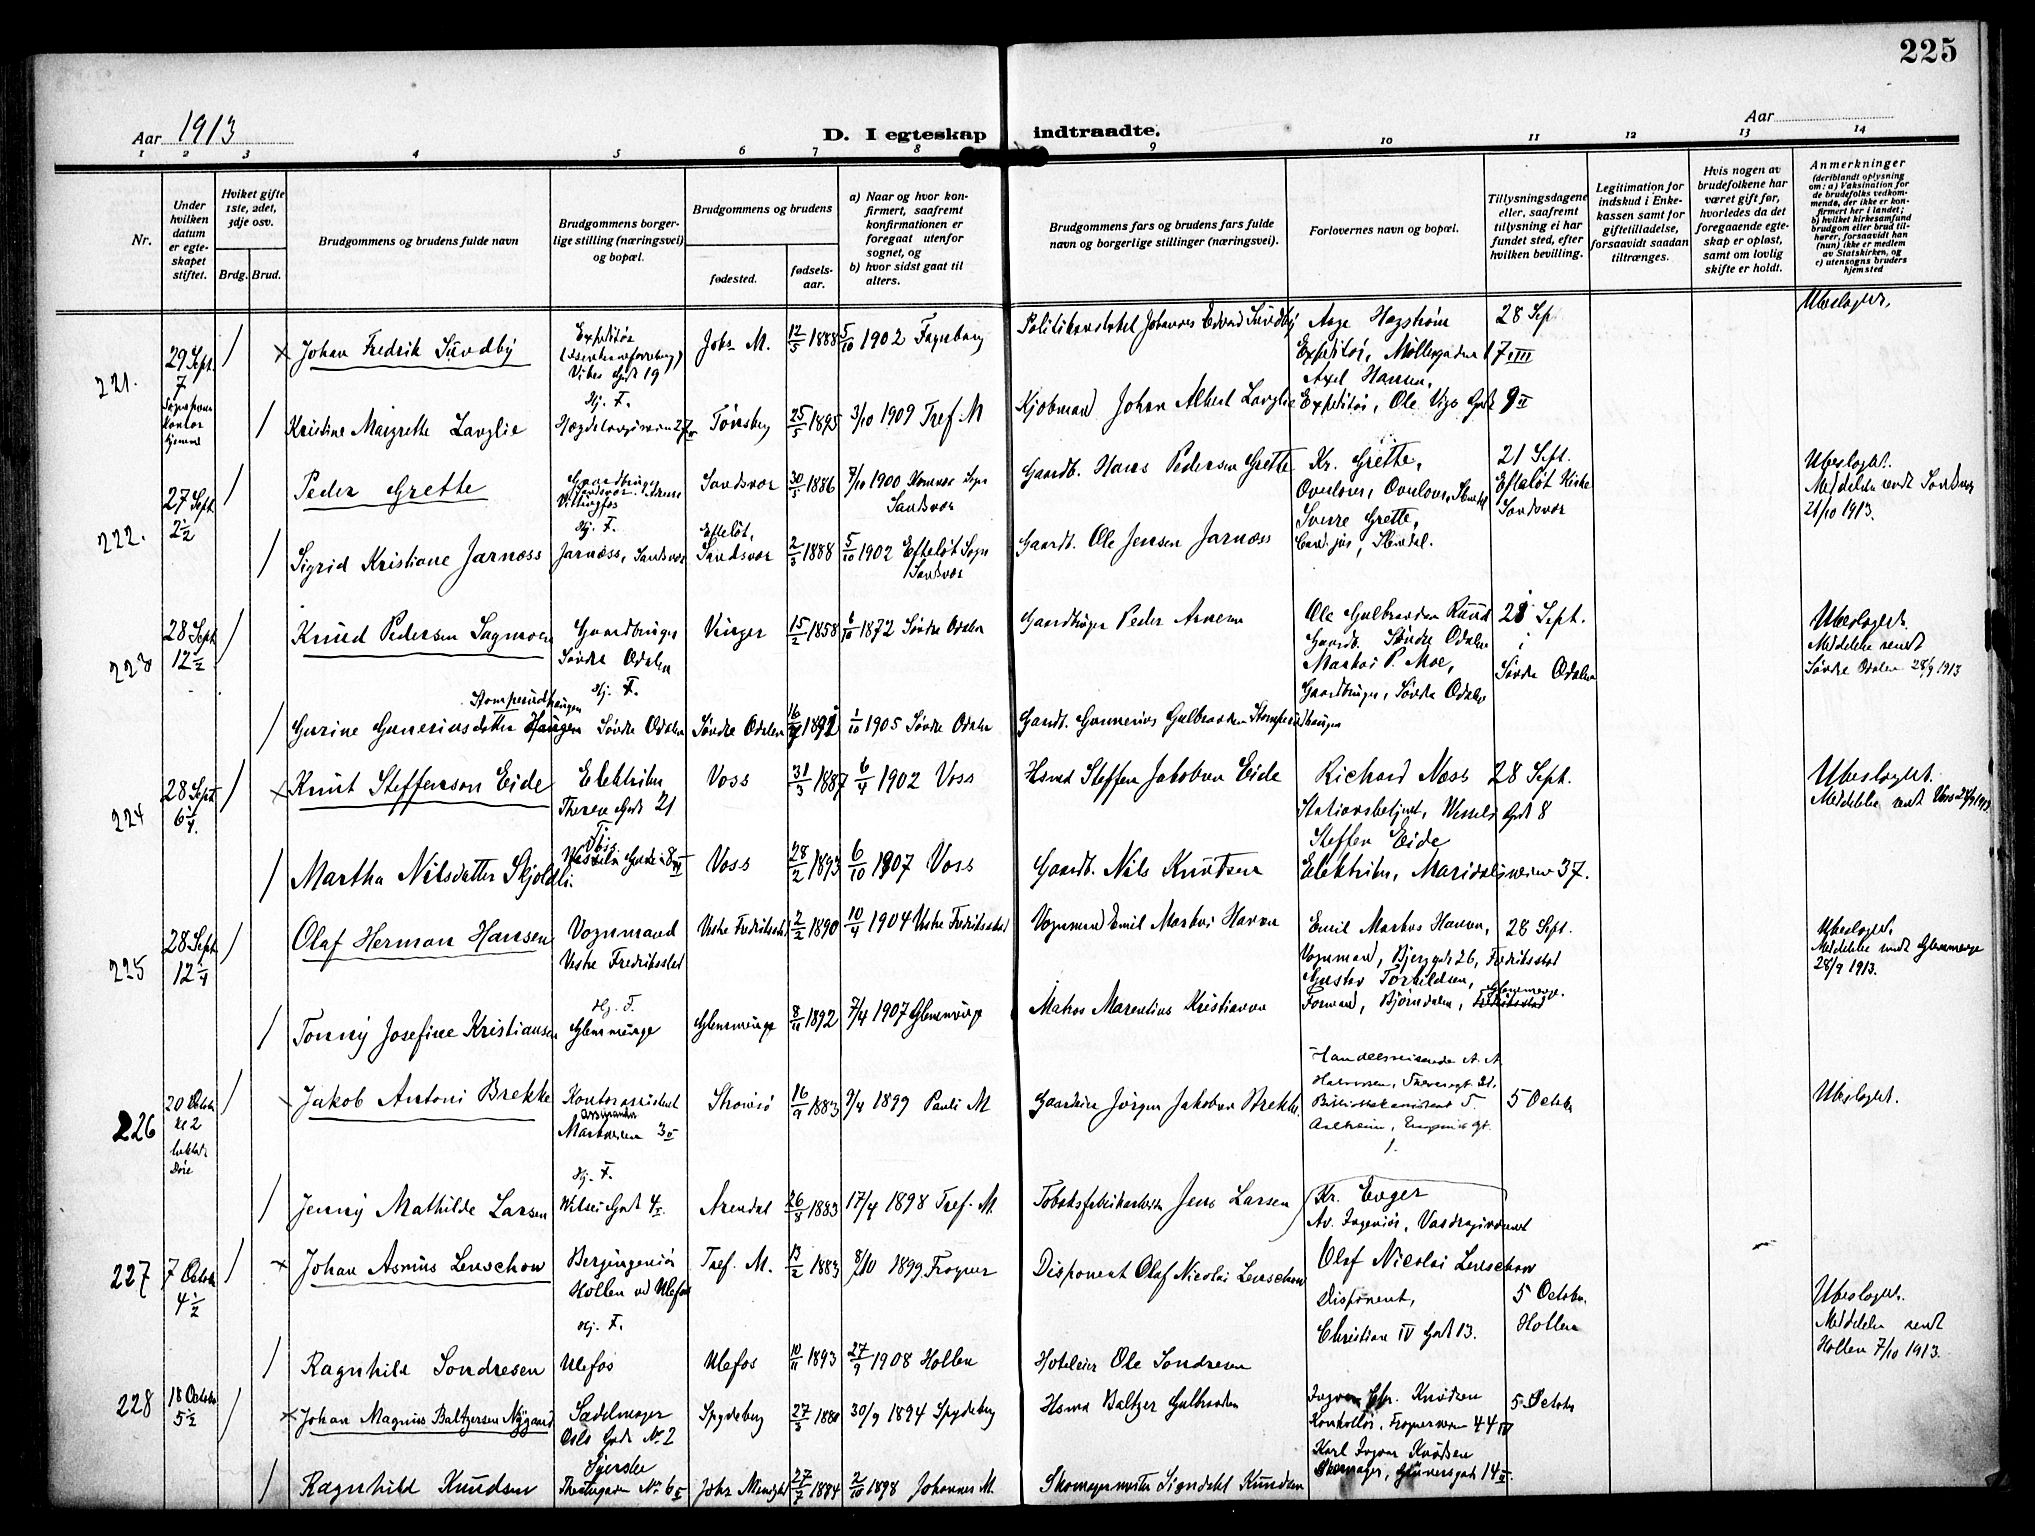 225
Aar 1913
D. I egteskap indtraadte.
Aar
1 2 3 4 5 6 7 8 9 10 11 12 13 14
Nr.
Under hvilken datum er egteskapet stiftet.
Hvilket gifte 1ste, 2det, 3dje osv.
Brdg. Brud.
Brudgommens og brudens fulde navn
Brudgommens borgerlige stilling (næringsvei) og bopæl.
Brudgommens og brudens
fødested.
fødselsaar.
a) Naar og hvor konfirmert, saafremt konfirmationen er foregaat utenfor sognet, og
b) hvor sidst gaat til alters.
Brudgommens fars og brudens fars fulde navn og borgerlige stillinger (næringsvei).
Forlovernes navn og bopæl.
Tillysningsdagene eller, saafremt tillysning ei har fundet sted, efter hvilken bevilling.
Legitimation for indskud i Enkekassen samt for giftetilladelse, forsaavidt saadan tiltrænges.
Hvis nogen av brudefolkene har været gift før, hvorledes da det foregaaende egteskap er opløst, samt om lovlig skifte er holdt.
Anmerkninger (deriblandt oplysning om: a) Vaksination for de brudefolks vedkommende, der ikke er konfirmert her i landet; b) hvilket kirkesamfund brudgom eller brud tilhører, forsaavidt han (hun) ikke er medlem av Statskirken, og c) utensogns bruders hjemsted
221. 29 Sept. 7
Johan Fredrik Sundby
Expeditør
Johs M. 12/5 1888 5/10 1902 Fagerborg
Johannes Edvard Sundby
Aage Hagstrøm
Expeditør, Møllergaden
28 Sep
Ubeslægtet.
Kristine Margrethe Langlie
Tønsberg 25/5 1895 3/10 1909 Tref. M
Kjøbmand Johan Albert Langlie
Axel Hansen,
Expeditør, Ole Vigs Gade 9 II
222. 27 Sept 2 1/2
Peder Grette
Gaardbruger
Sandsvær 30/5 1886 7/10 1900
Sandsvær
Gaardb. Hans Pedersen Grette
Kr. Grette,
21 Sept.
Efteløt Kirke
Sandsvær
Ubeslægtet.
Meddelelse sendt Sandsvær
21/10 1913.
Sigrid Kristiane Jarnæss
Hj. F.
Jarnæss, Sandsvær
Efteløt, Sandsvær 2/3 1888 5/10 1902 Efteløt Sogn
Sandsvær
Gaardb. Ole Jensen Jarnæss
Sverre Grette,
Cand. jur.,
223 28 Sept 12 1/2
Knud Pedersen Sagmoen
Gaardbruger
Søndre Odalen
Vinger 15/2 1858 6/10 1872 Søndre Odalen
Gaardbruger Peder Arnesen
Ole Gulbrandsen Ruud
Gaardb. Søndre Odalen
28 Sept.
i
Søndre Odalen
Ubeslægtet.
Meddelelse sendt
Søndre Odalen 28/9 1913
Gurine Guneriusdatter Haugen
Hj. F.
Søndre Odalen
Søndre Odalen 1892 1/10 1905 Søndre Odalen
Gaardb. Gunnerius Gulbrandsen
Markus P. Moe,
Gaardbruger, Søndre Odalen
224 28 Sept 6 1/4.
Knut Steffenson Eide
Elektriker
Therese Gade 21
Voss 31/3 1887 6/4 1902 Voss
Husmd Steffen Jakobsen Eide
Richard Næss
Stationsbetjent, Wessels Gade 8
28 Sept.
Ubeslægtet.
Martha Nilsdatter Skjoldli.
Voss 28/2 1893 6/10 1907 Voss
Gaardb. Nils Knutsen
Steffen Eide
Elektriker, Maridalsveien 37.
225 28 Sept 12 1/4
Olaf Herman Hansen
Vognmand
Vestre Fredriksstad
Vestre Fredriksstad 2/2 1890 10/4 1904 Vestre Fredriksstad
Vognmand Emil Markus Hansen
Emil Markus Hansen,
Vognmand, Bjerggade 26, Fredriksstad
28 Sept.
Ubeslægtet.
Meddelelse sendt Glemminge
28/9 1913.
Tonny Josefine Kristiansen
Hj. F.
Glemminge
Glemminge 8/11 1892 7/4 1907 Glemminge
Matros Marentius Kristiansen
Gustav Torkildsen,
Formand, Bjørndalen, Glemminge.
226 20 Octobr kl 2
Jakob Antoni Brekke
Kontorassistent
Markveien 3 II
Strømsø 16/9 1883 9/4 1899 Pauli M
Jørgen Jakobsen Brekke.
Handelsreisende A. A.
Halvorsen, Theresegt. 21.
5 Octobr
Ubeslægtet.
Jenny Mathilde Larsen
Hj. F.
Arendal 26/8 1883 17/4 1898 Tref. M.
Jens Larsen
Kr. Enger
227 7 Octobr 4 1/2
Johan Asmus Lenschow
Bergingeniør
Hollen ved Ulefos
Tref. M. 13/2 1883 8/10 1899 Frogner
Disponent Olaf Nicolai Lenschow
Olaf Nicolai Lenschow
Disponent,
Christian IV Gade 13.
5 Octobr.
Hollen
Ubeslægtet.
Meddelelse sendt
Hollen 7/10 1913.
Ragnhild Sondresen
Hj. F.
Ulefos
Ulefos 10/11 1893 27/9 1908 Hollen
Hoteleier Ole Sondresen
228 18 Octobr 5 1/2
Johan Magnus Baltzersen Nygaard
Sadelmager
Oslo Gade No 2
Spydeberg 27/3 1880 30/9 1894 Spydeberg
Husmd Baltzer Gulbrandsen
Ingvar Chr. Knudsen
Kontrollør, Frognerveien 44 IV
5 Octobr
Ragnhild Knudsen
Syerske
1884 2/10 1898 Johannes M.
Skomagermester Knudsen
Karl Ingvar Knudsen
Skomager,